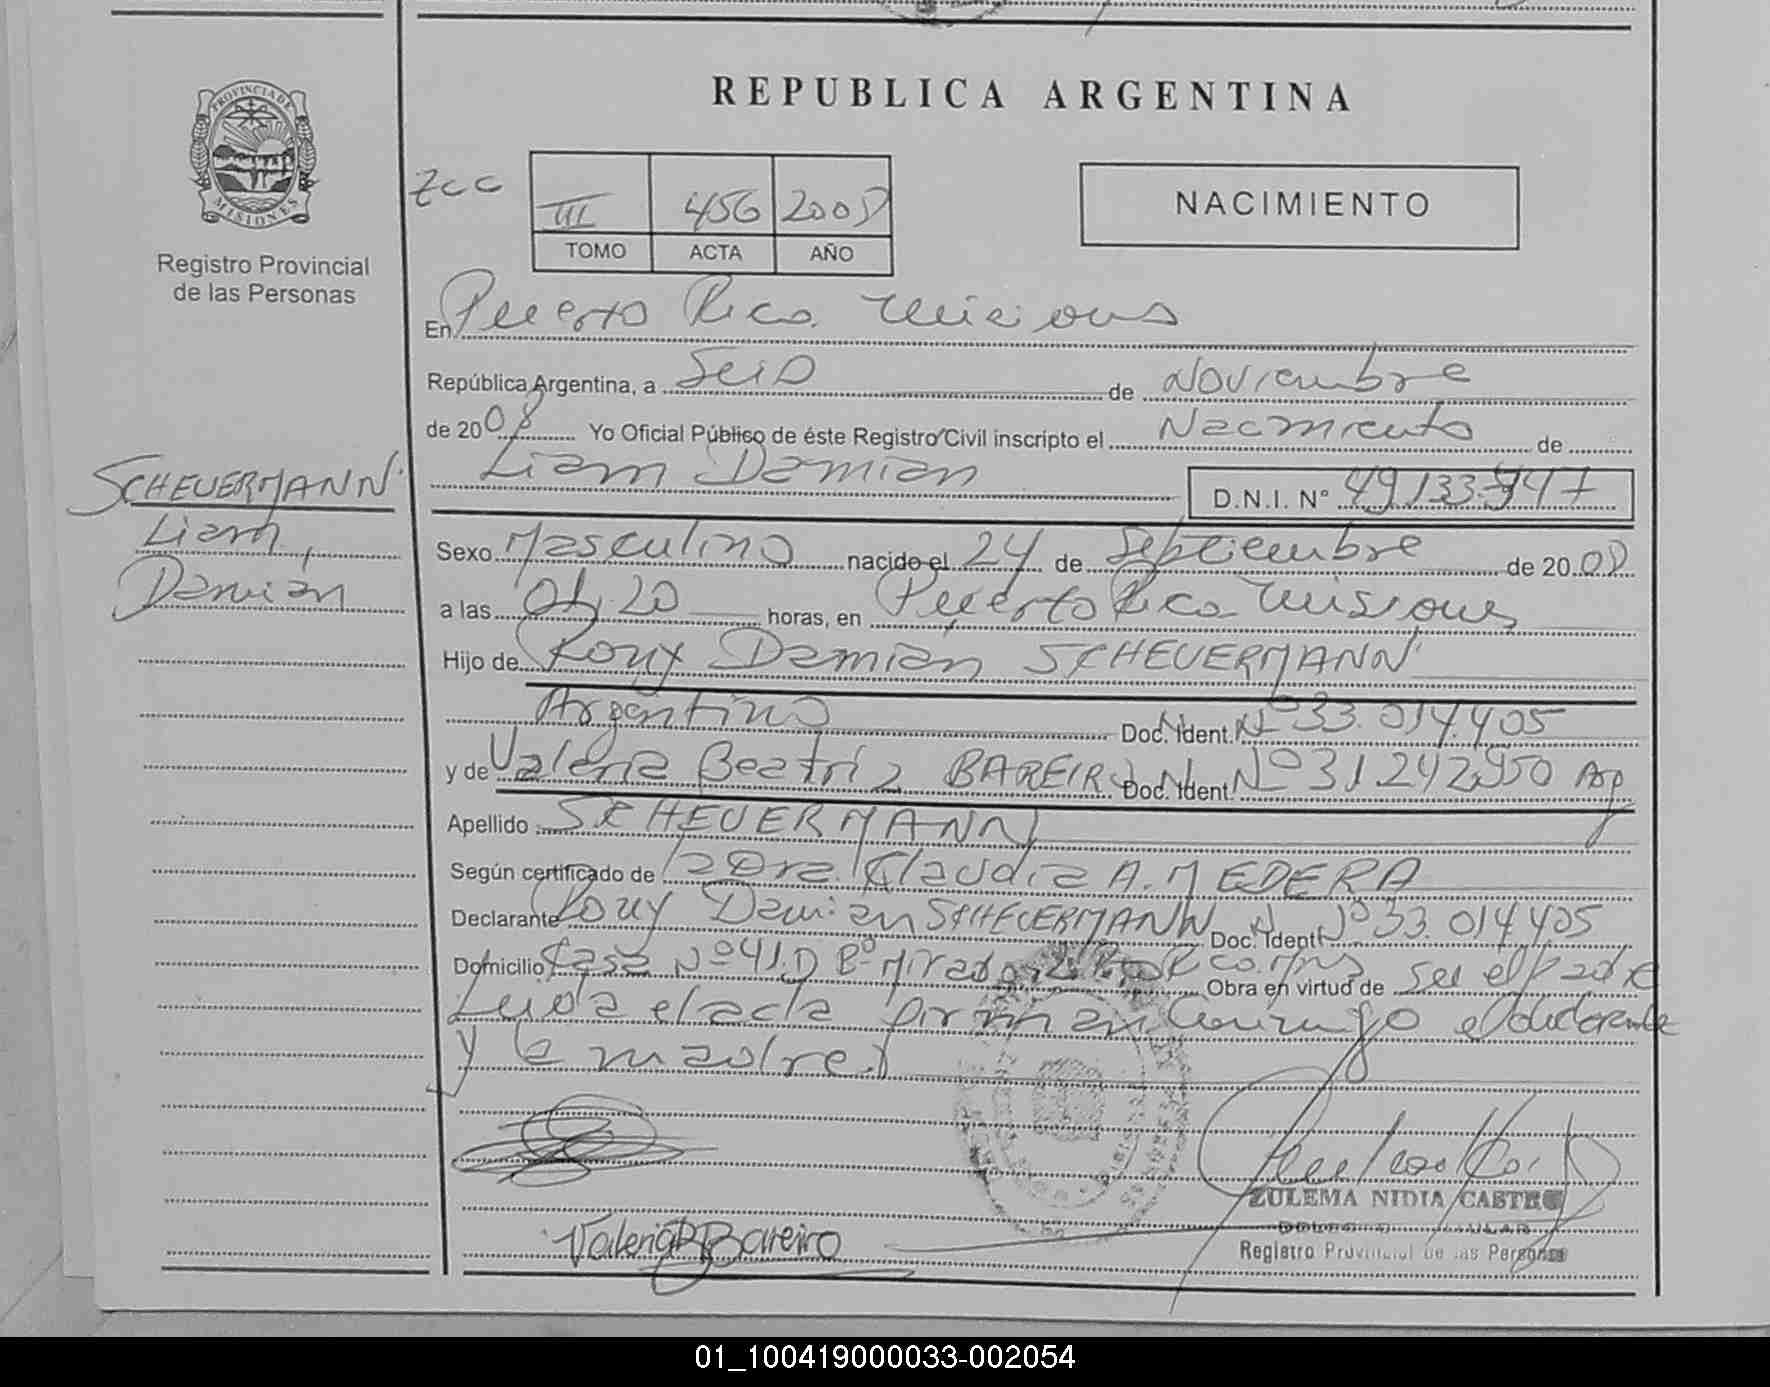 PROVINCIA DE
MISIONES
Registro Provincial
de las Personas
SCHEUERMANN
Liam,
Damian
REPUBLICA ARGENTINA
III 456 2008
TOMO ACTA AÑO
NACIMIENTO
En Puerto Rico Misiones
República Argentina, a Seis de Noviembre
de 2008 Yo Oficial Público de éste Registro Civil inscripto el Nacimiento de
Liam Damian D.N.I. N° 49133947
Sexo Masculino nacido el 24 de Septiembre de 2008
a las horas, en Puerto Rico Misiones
Hijo de Rony Damian SCHEUERMANN
Argentino Doc. Ident. N° 33.014.405
y de Valeria Beatriz BAREIRO Doc. Ident. N° 31.242.950 Arg
Apellido SCHEUERMANN
Según certificado de la Dra. Claudia A. MEDERA
Declarante Rony Damian SCHEUERMANN Doc. Ident. N° 33.014.405
Domicilio Casa N° 41 D B° Mirador Pto Rico. Mns Obra en virtud de ser el padre
Leida el acta firman conmigo el declarante
y la madre
Valeria B Bareiro
ZULEMA NIDIA CASTRO
Registro Provincial de las Personas
01_100419000033-002054